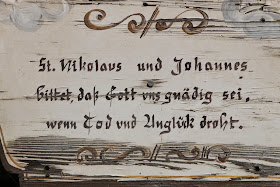 St. Nikolaus und Johannes
bittet, daß Gott uns gnädig sei,
wenn Tod und Unglück droht.